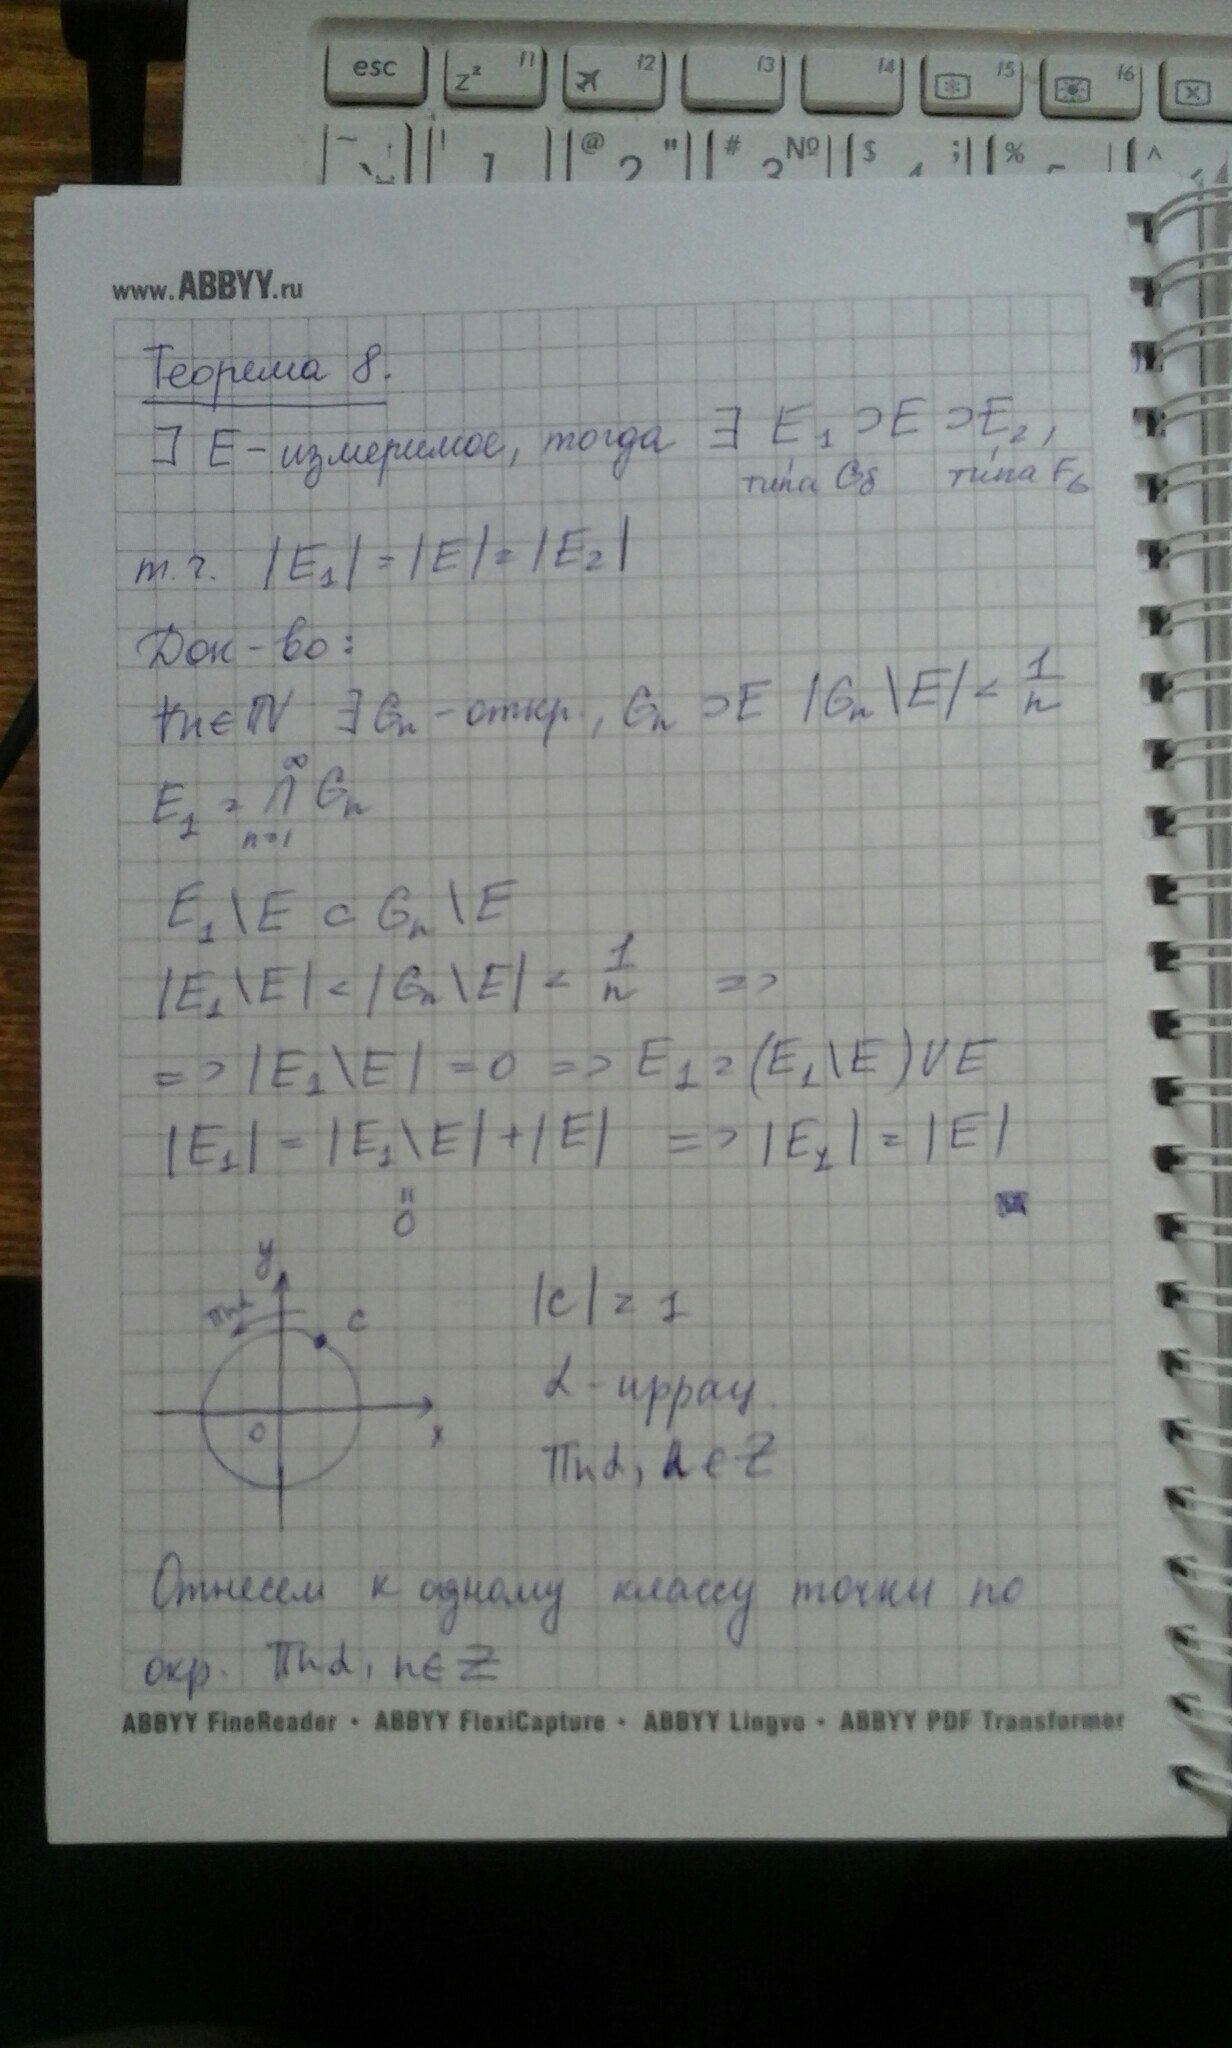 esc
z² f1
f2
f3
f4
f5
f6
~
! 1
@ 2 "
# 3 №
$ 4 ;
%
^
www.ABBYY.ru
Теорема 8.
∃ E - измеримое, тогда ∃ E₁ ⊃ E ⊃ E₂,
типа Gδ типа Fσ
т.ч. |E₁| = |E| = |E₂|
Док-во:
∀n∈ℕ ∃ Gₙ - откр., Gₙ ⊃ E |Gₙ \ E| < 1/n
E₁ = ⋂ₙ₌₁^∞ Gₙ
E₁ \ E ⊂ Gₙ \ E
|E₁ \ E| < |Gₙ \ E| < 1/n =>
=> |E₁ \ E| = 0 => E₁ = (E₁ \ E) ∪ E
|E₁| = |E₁ \ E| + |E| => |E₁| = |E|
=
0
y
πnα
c
|c| = 1
α - иррац.
0
x
πnα, α ∈ ℤ
Отнесем к одному классу точки по
окр. πnα, n ∈ ℤ
ABBYY FineReader • ABBYY FlexiCapture • ABBYY Lingvo • ABBYY PDF Transformer